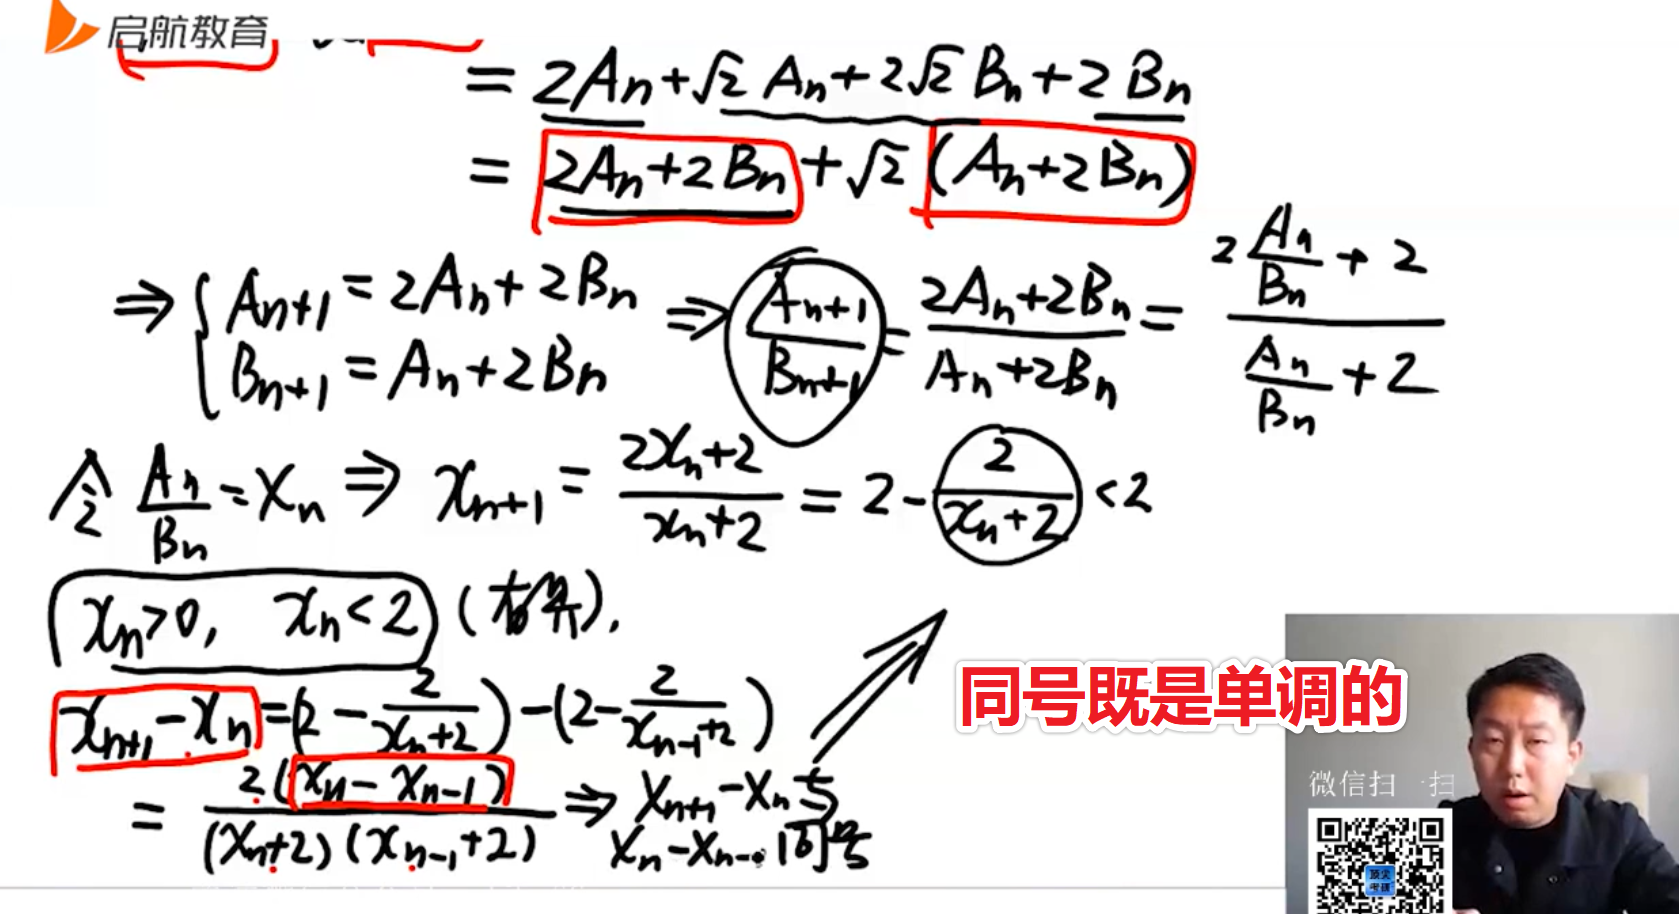 启航教育
= 2An + √2 An + 2√2 Bn + 2Bn
= 2An + 2Bn + √2 (An + 2Bn)
⇒ { An+1 = 2An + 2Bn
Bn+1 = An + 2Bn
⇒ An+1/Bn+1 = (2An + 2Bn)/(An + 2Bn) = (2 An/Bn + 2)/(An/Bn + 2)
令 An/Bn = xn ⇒ xn+1 = (2xn + 2)/(xn + 2) = 2 - 2/(xn + 2) < 2
xn > 0, xn < 2 (有界).
xn+1 - xn = (2 - 2/(xn + 2)) - (2 - 2/(xn-1 + 2))
= 2(xn - xn-1)/((xn + 2)(xn-1 + 2)) ⇒ xn+1 - xn 与
xn - xn-1 同号
同号既是单调的
微信扫一扫
顶尖
考研